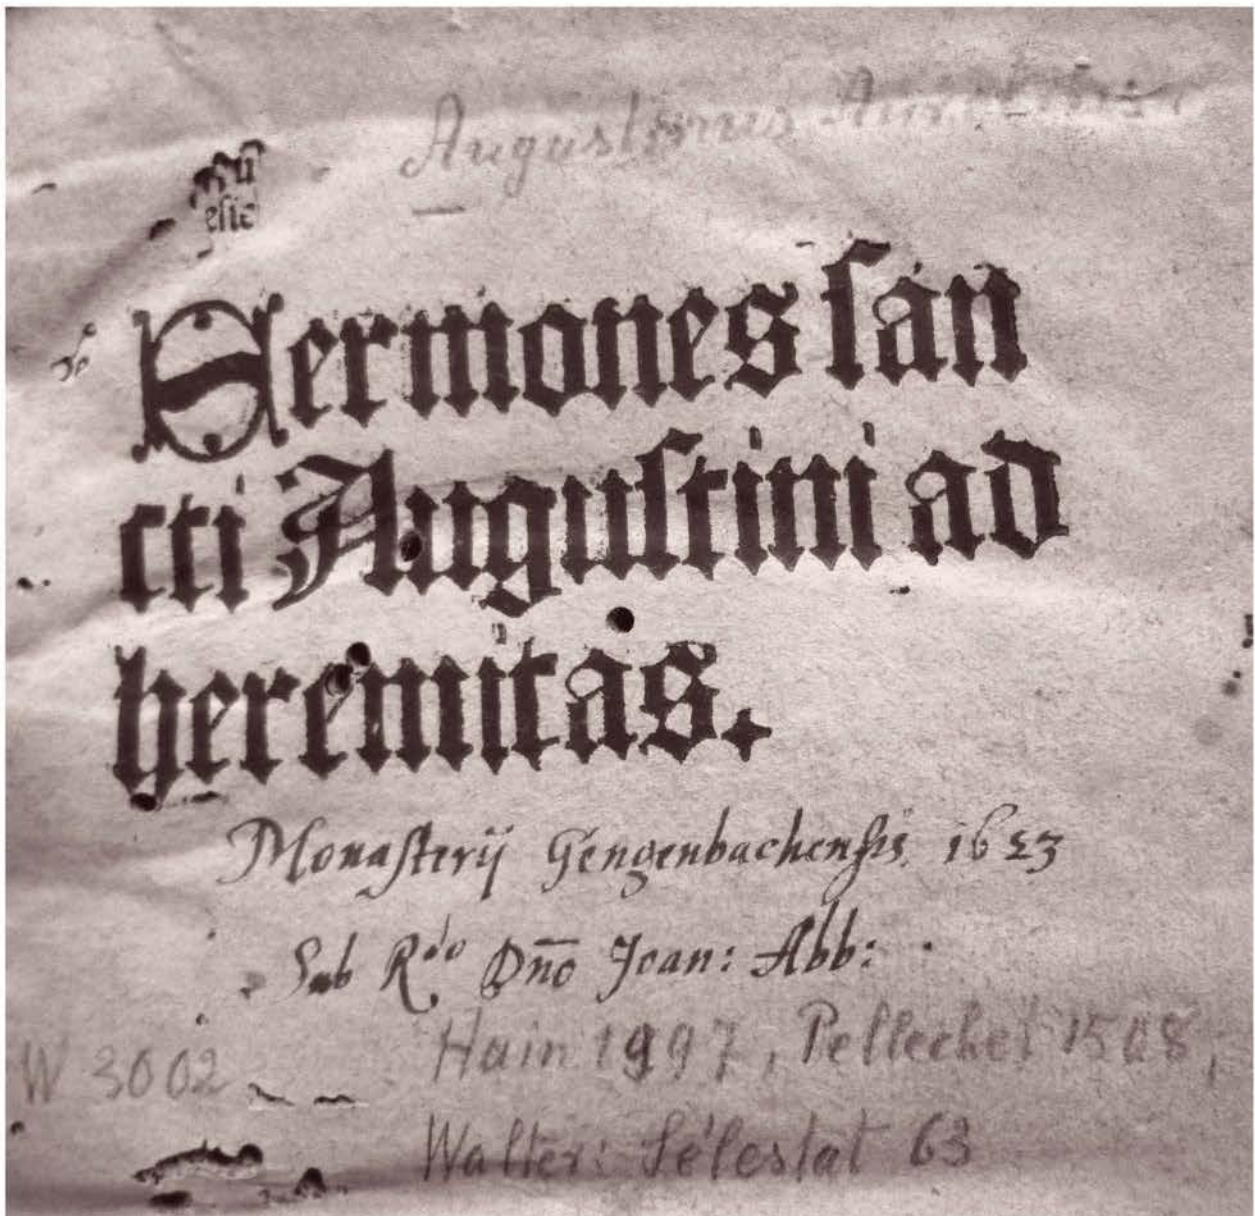 Augustinus Aurelius
Sermones ſan
cti Auguſtini ad
heremitas.
Monaſterij Gengenbachenſis 1623
Sub R.do Dn̄o Joan: Abb:
Hain 1997, Pellechet 1508,
W 3002
Walter: Sélestat 63